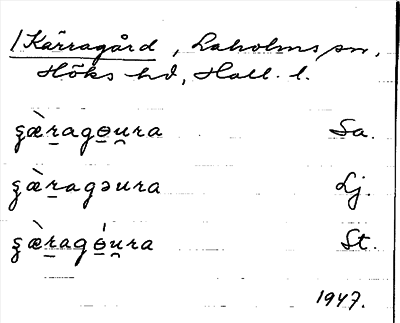 /Kärragård, Laholms sn,
Höks hd, Hall. l.
ʂæ̀r̲agɵ̲u̯ra Sa.
ʂæ̀r̲agəura Lj.
ʂæ̀r̲agɵ̲́u̯ra St.
1947.